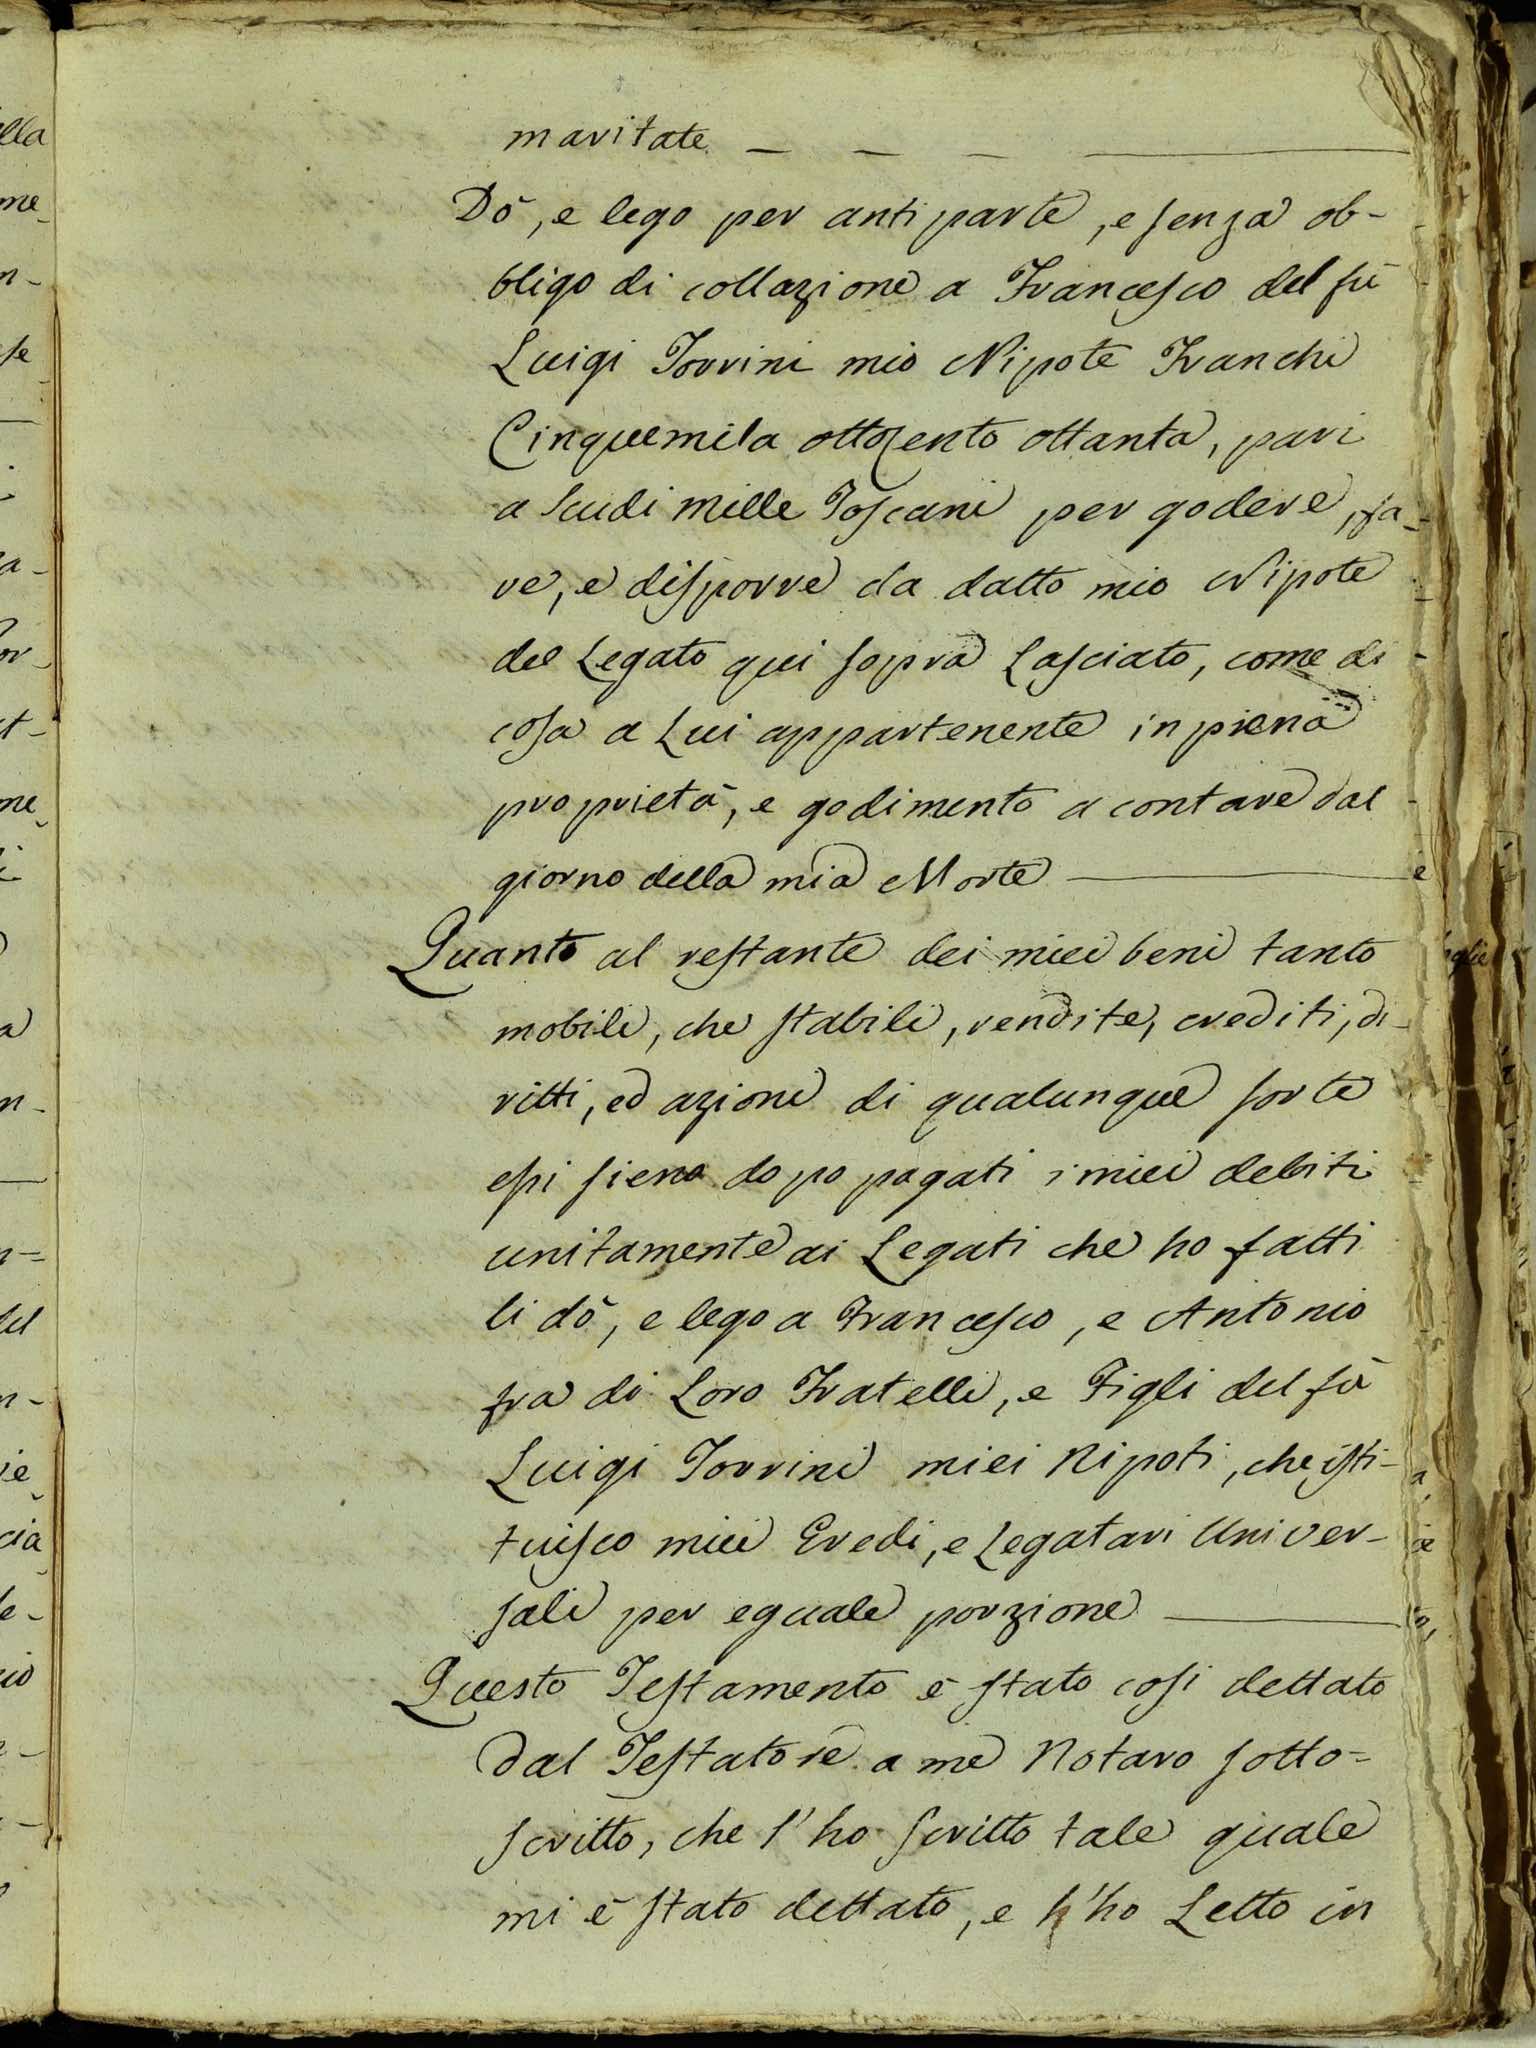 maritate. — — — ———
Dò, e lego per antiparte, e senza ob-
bligo di collazione a Francesco del fù
Luigi Torrini mio Nipote Franchi
Cinquemila ottocento ottanta, pari
a Scudi Mille Toscani per godere, fa-
re, e disporre da datto mio Nipote
del Legato qui sopra Lasciato, come di
cosa a Lui appartenente in piena
proprietà, e godimento a contare dal
giorno della mia Morte ———
Quanto al restante dei miei beni tanto
mobili, che stabili, rendite, crediti, di-
ritti, ed azioni di qualunque sorte
essi sieno dopo pagati i miei debiti
unitamente ai Legati che ho fatti
li dò, e lego a Francesco, e Antonio
fra di Loro Fratelli, e Figli del fù
Luigi Torrini miei Nipoti, che isti-
tuisco miei Eredi, e Legatari Univer-
sali per eguale porzione ———
Questo Testamento è stato così dettato
dal Testatore a me Notaro sotto=
scritto, che l'ho scritto tale quale
mi è stato dettato, e l'ho Letto in